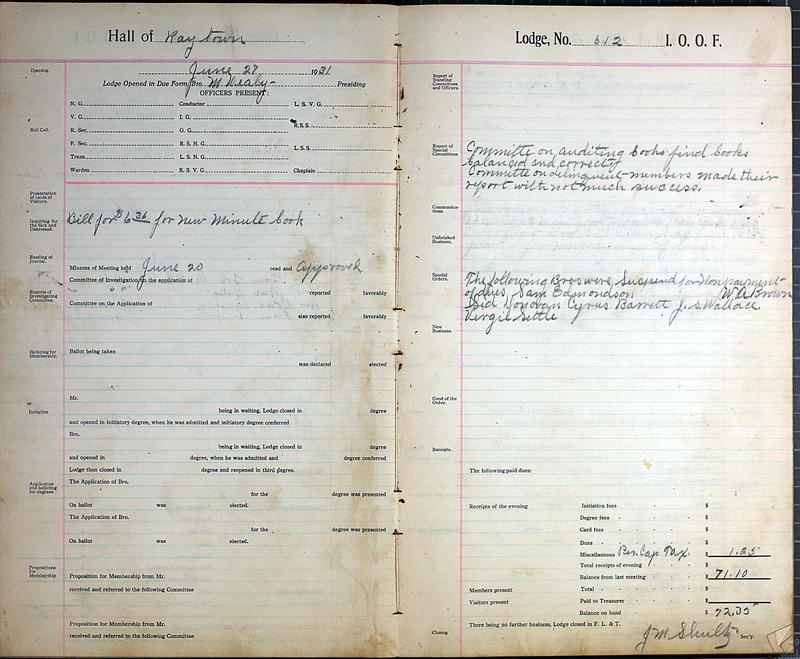 Hall of Raytown
June 27 1931
Opening.
Lodge Opened in Due Form, Bro. M Dealy Presiding
OFFICERS PRESENT:
N. G. Conductor L. S. V. G.
V. G. I. G.
R.S.S.
Roll Call.
R. Sec. O. G.
F. Sec. R. S. N. G.
L.S.S.
Treas. L. S. N. G.
Warden R. S. V. G. Chaplain
Presentation of cards of Visitors.
Inquiring for the Sick and Distressed.
Bill for $6 36 for new Minute book
Reading of Journal.
Minutes of Meeting held June 20 read and Approved
Committee of Investigation on the application of
Reports of Investigating Committee.
reported favorably
Committee on the Application of
also reported favorably
Balloting for Membership.
Ballot being taken
was declared elected
Mr.
Initiation
being in waiting, Lodge closed in degree
and opened in initiatory degree, when he was admitted and initiatory degree conferred
Bro.
being in waiting, Lodge closed in degree
and opened in degree, when he was admitted and degree conferred
Lodge then closed in degree and reopened in third degree.
Application and balloting for degrees
The Application of Bro.
for the degree was presented
On ballot was elected.
The Application of Bro.
for the degree was presented
On ballot was elected.
Propositions for Membership
Proposition for Membership from Mr.
received and referred to the following Committee
Proposition for Membership from Mr.
received and referred to the following Committee
Lodge, No. 612 I. O. O. F.
Report of Standing Committees and Officers.
Report of Special Committees
Committe on auditing books find books
balanced and correct
Committe on delinquent members made their
report with not much success.
Communications.
Unfinished Business.
Special Orders.
The following Bros were Suspend for Nonpayment
of dues, Sam Edmondson W A Brown
Sid Donovan Cyrus Barrett J. S. Wallace
Virgil Settle
New Business.
Good of the Order.
Receipts.
The following paid dues:
Receipts of the evening
Initiation fees $
Degree fees $
Card fees $
Dues $
Miscellaneous Per Cap Tax. $ 1.25
Total receipts of evening $
Balance from last meeting $ 71.10
Members present
Total $
Visitors present
Paid to Treasurer $
Balance on hand $ 72.35
There being no further business, Lodge closed in F. L. & T.
Closing
J M Shultz Sec'y.